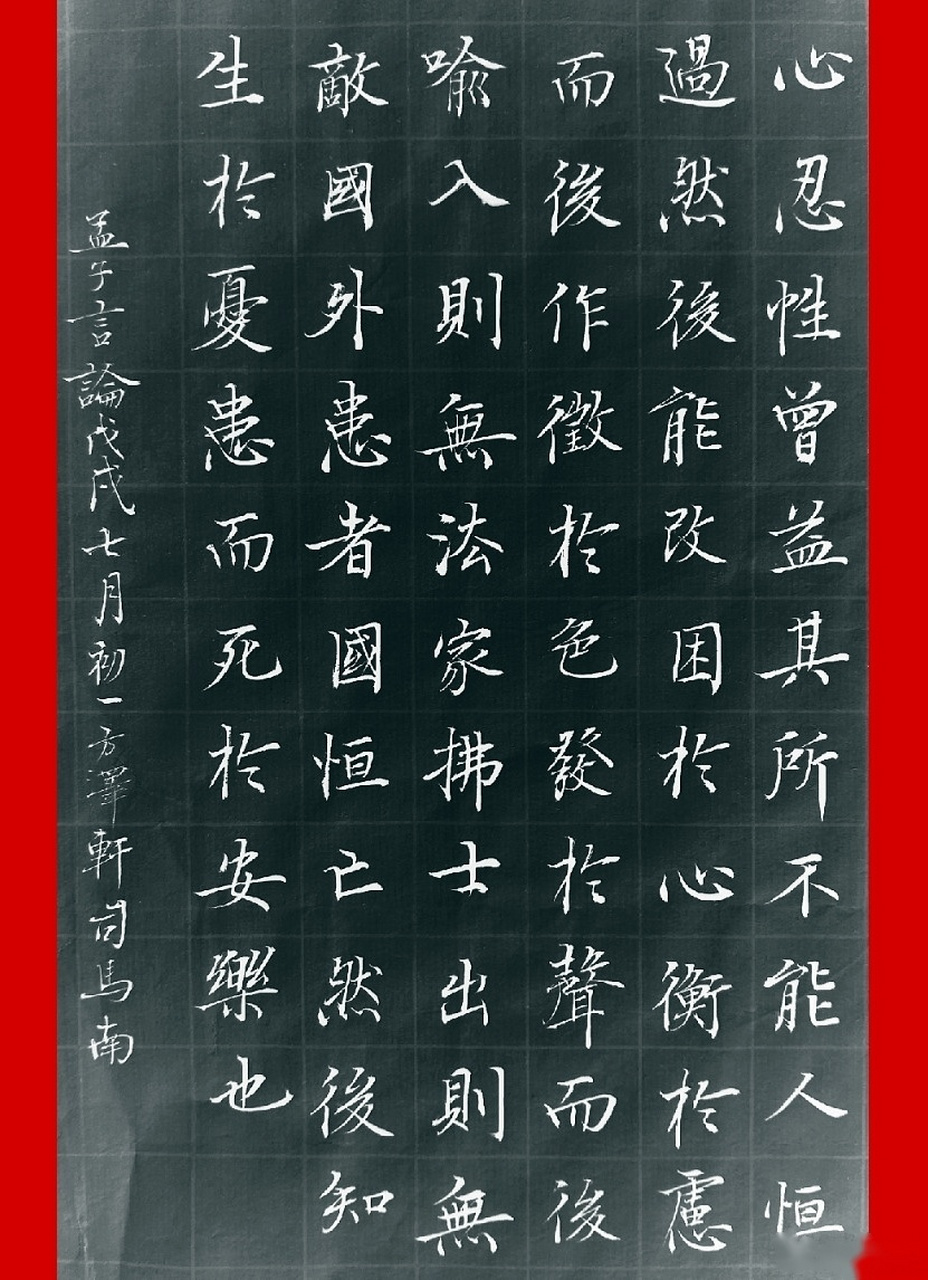 心忍性曾益其所不能人恒
過然後能改困於心衡於慮
而後作徵於色發於聲而後
喻入則無法家拂士出則無
敵國外患者國恒亡然後知
生於憂患而死於安樂也
孟子言論戊戌七月初一方澤軒司馬南